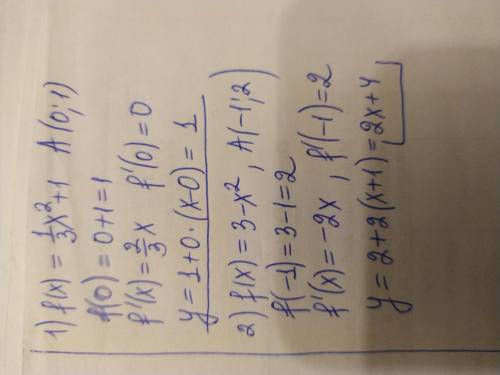 1) f(x) = 1/3 x² + 1 A(0; 1)
f(0) = 0+1=1
f'(x) = 2/3 x f'(0) = 0
y = 1+0·(x-0) = 1
2) f(x) = 3-x², A(-1; 2)
f(-1) = 3-1=2
f'(x) = -2x, f'(-1)=2
y = 2+2(x+1) = 2x+4